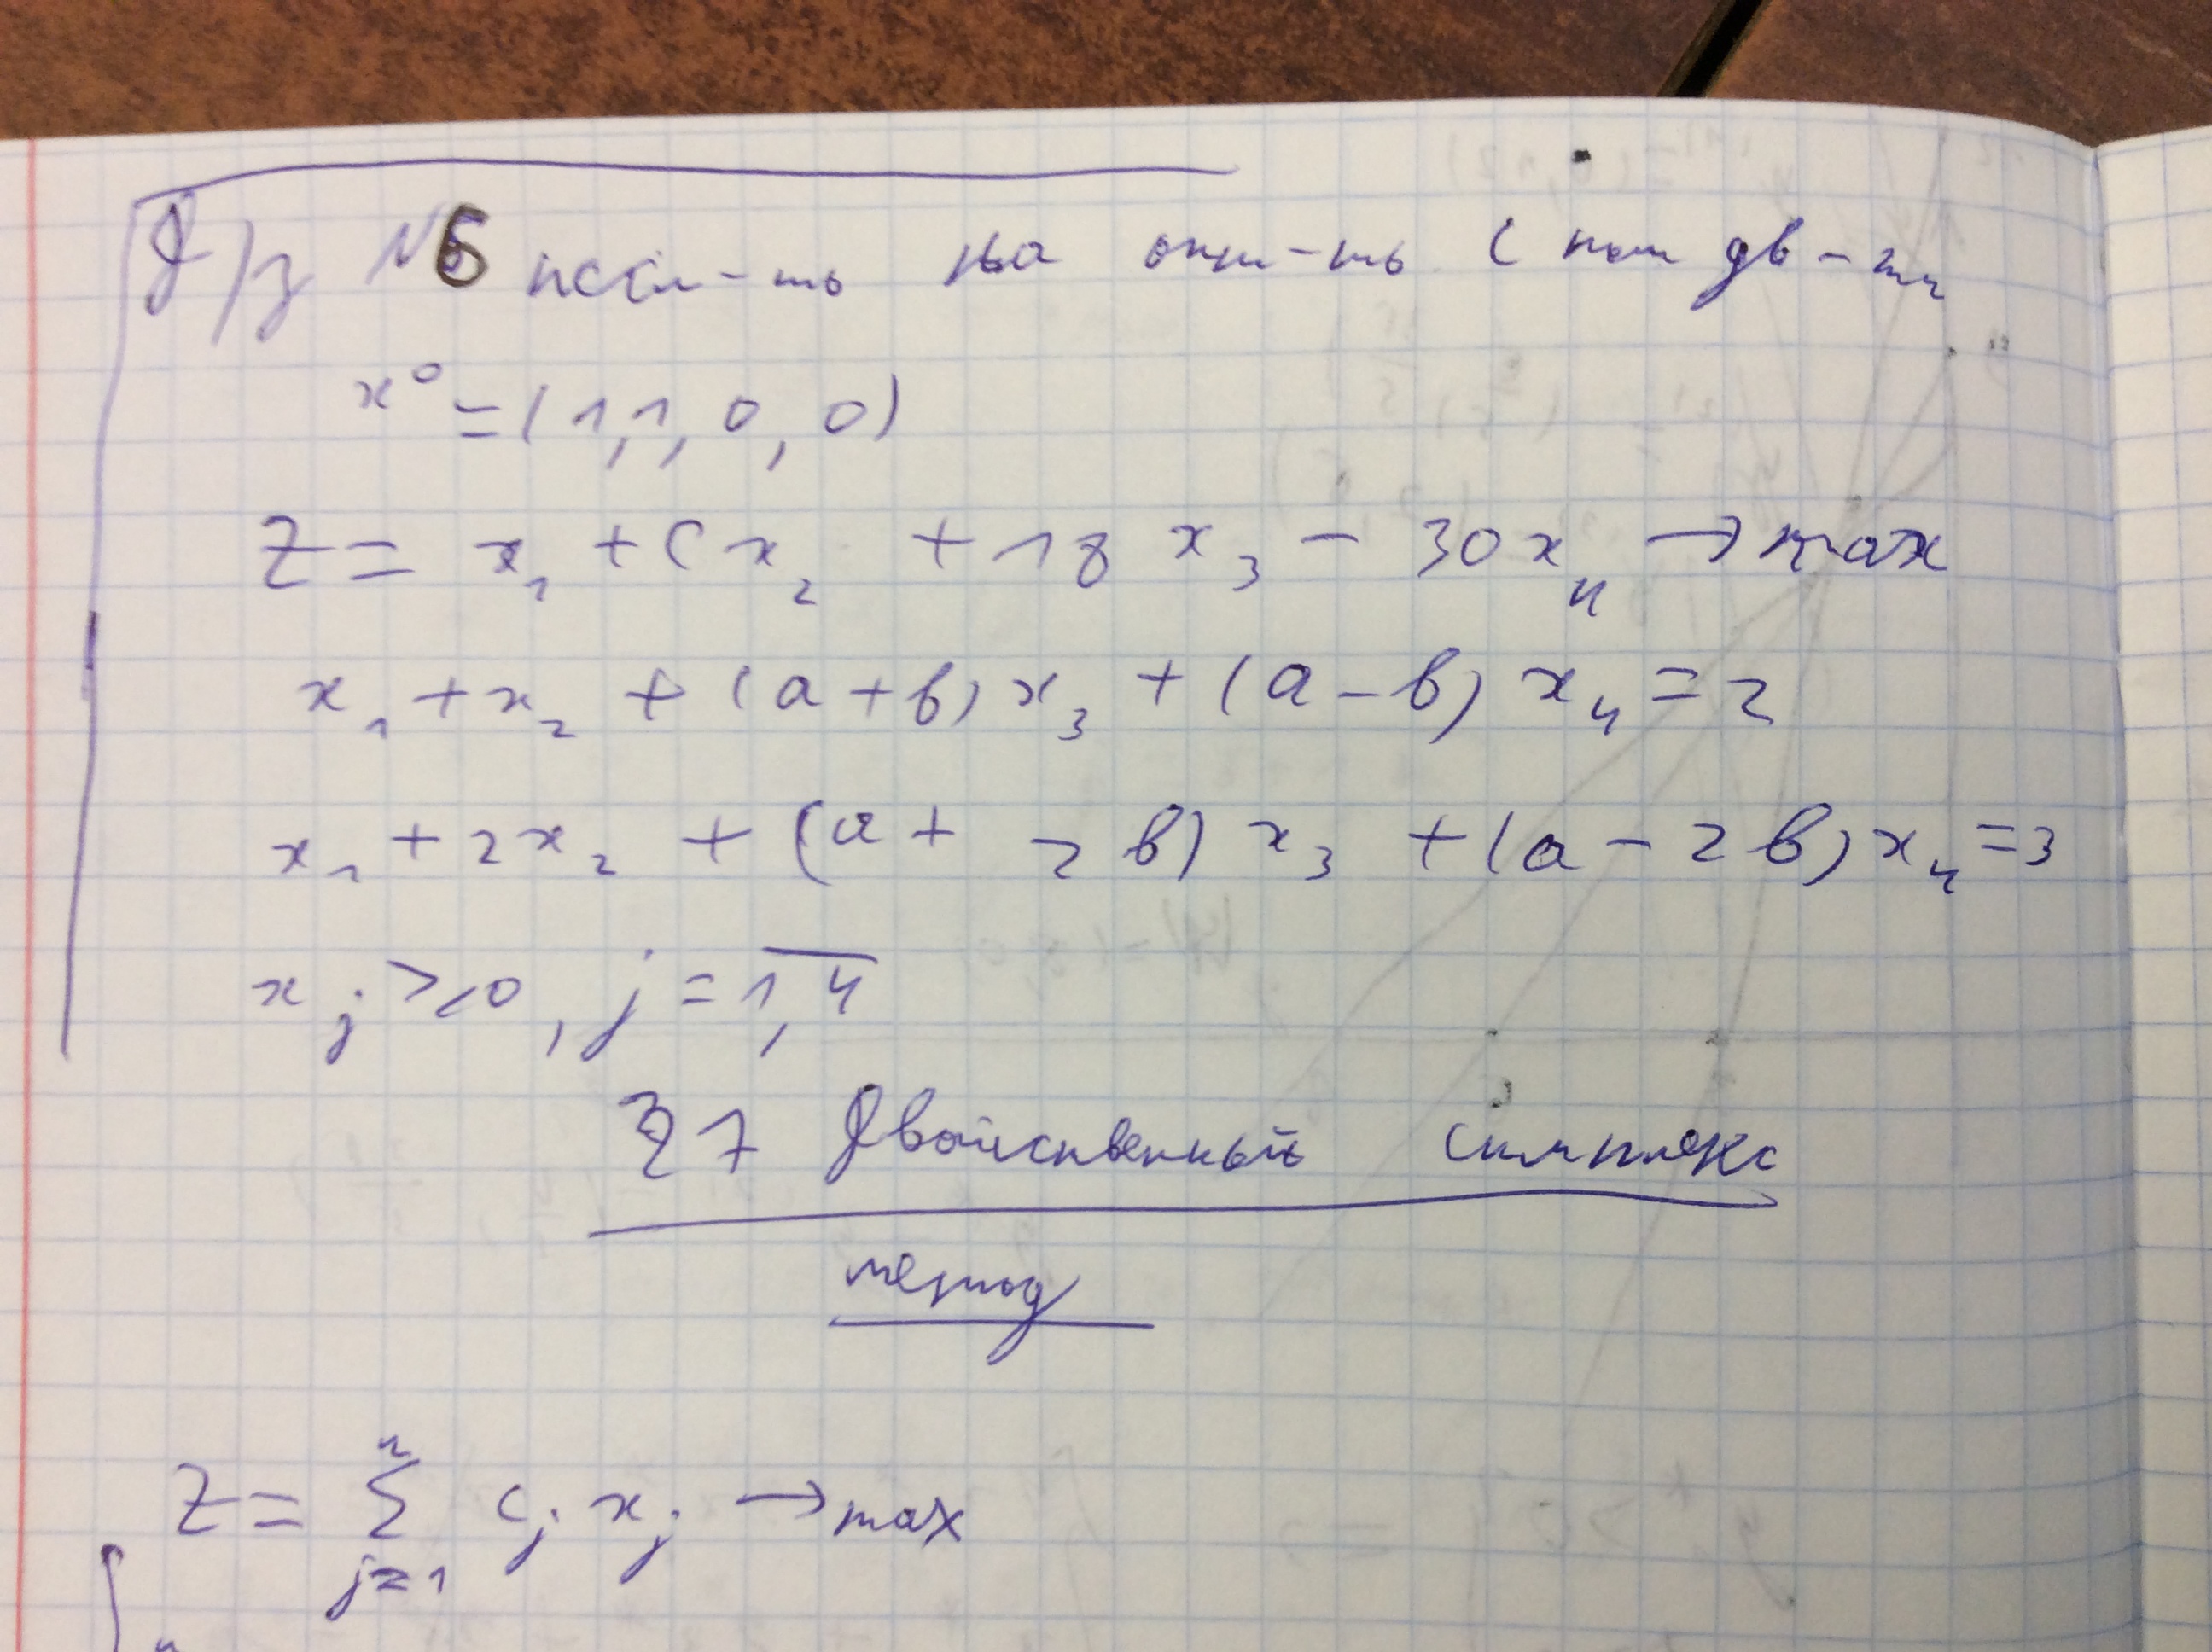 Д/з №6 иссл-ть на опт-ть с пом дв-ти
x⁰ = (1,1,0,0)
Z = x₁ + cx₂ + 18x₃ - 30x₄ → max
x₁ + x₂ + (a+b)x₃ + (a-b)x₄ = 2
x₁ + 2x₂ + (a+2b)x₃ + (a-2b)x₄ = 3
xⱼ ≥ 0, j = \overline{1,4}
§7 Двойственный симплекс
метод
Z = \sum_{j=1}^{n} cⱼ xⱼ → max